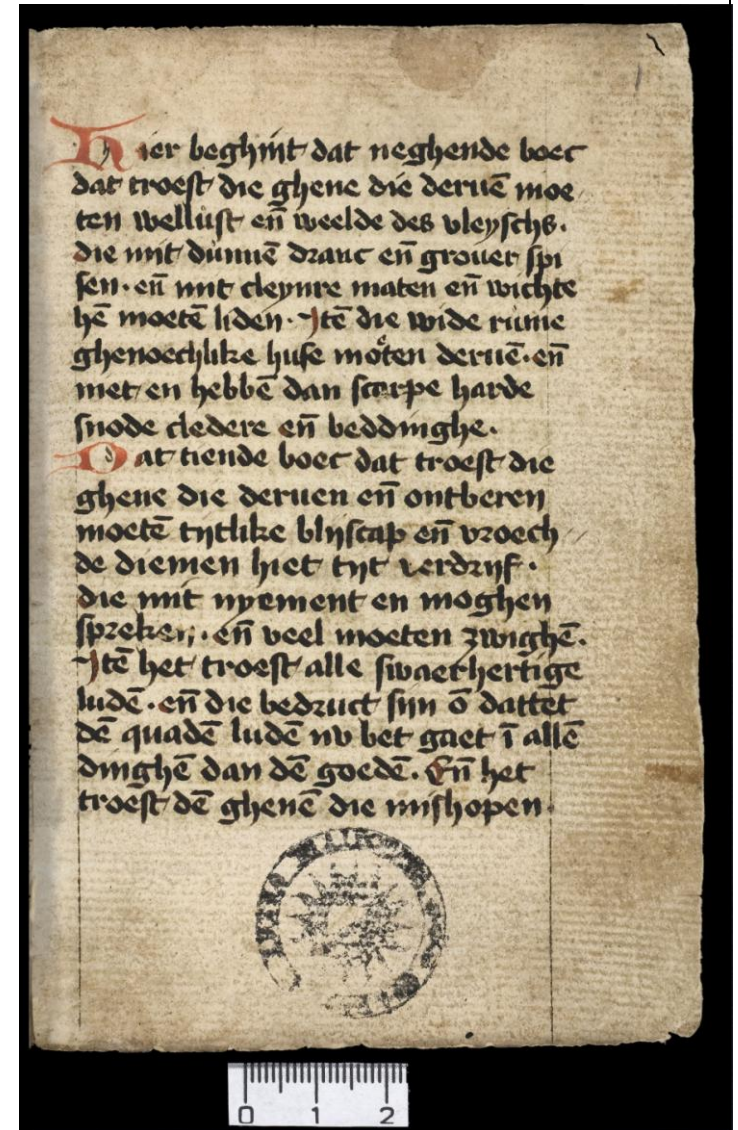 Hier beghint dat neghende boec
dat troest die ghene die deruē moe
ten wellust en̄ weelde des vleyschs.
die mit dunnē dranc en̄ grouer spi
sen. en̄ mit cleynre maten en̄ wichte
hē moetē liden. Itē die wide rume
ghenoechlike huse moeten deruē. en̄
niet en hebbē dan scerpe harde
snode cledere en̄ beddinghe.
Dat tiende boec dat troest die
ghene die deruen en̄ ontberen
moetē tijtlike blijscap en̄ vroech
de diemen hiet tijt verdrijf.
die mit nyement en moghen
spreken. en̄ veel moeten zwighē.
Itē het troest alle swaerhertige
ludē. en̄ die bedruct sijn ō dattet
dē quadē ludē nv bet gaet ī allē
dinghē dan dē goedē. En̄ het
troest dē ghenē die mishopen.
0 1 2